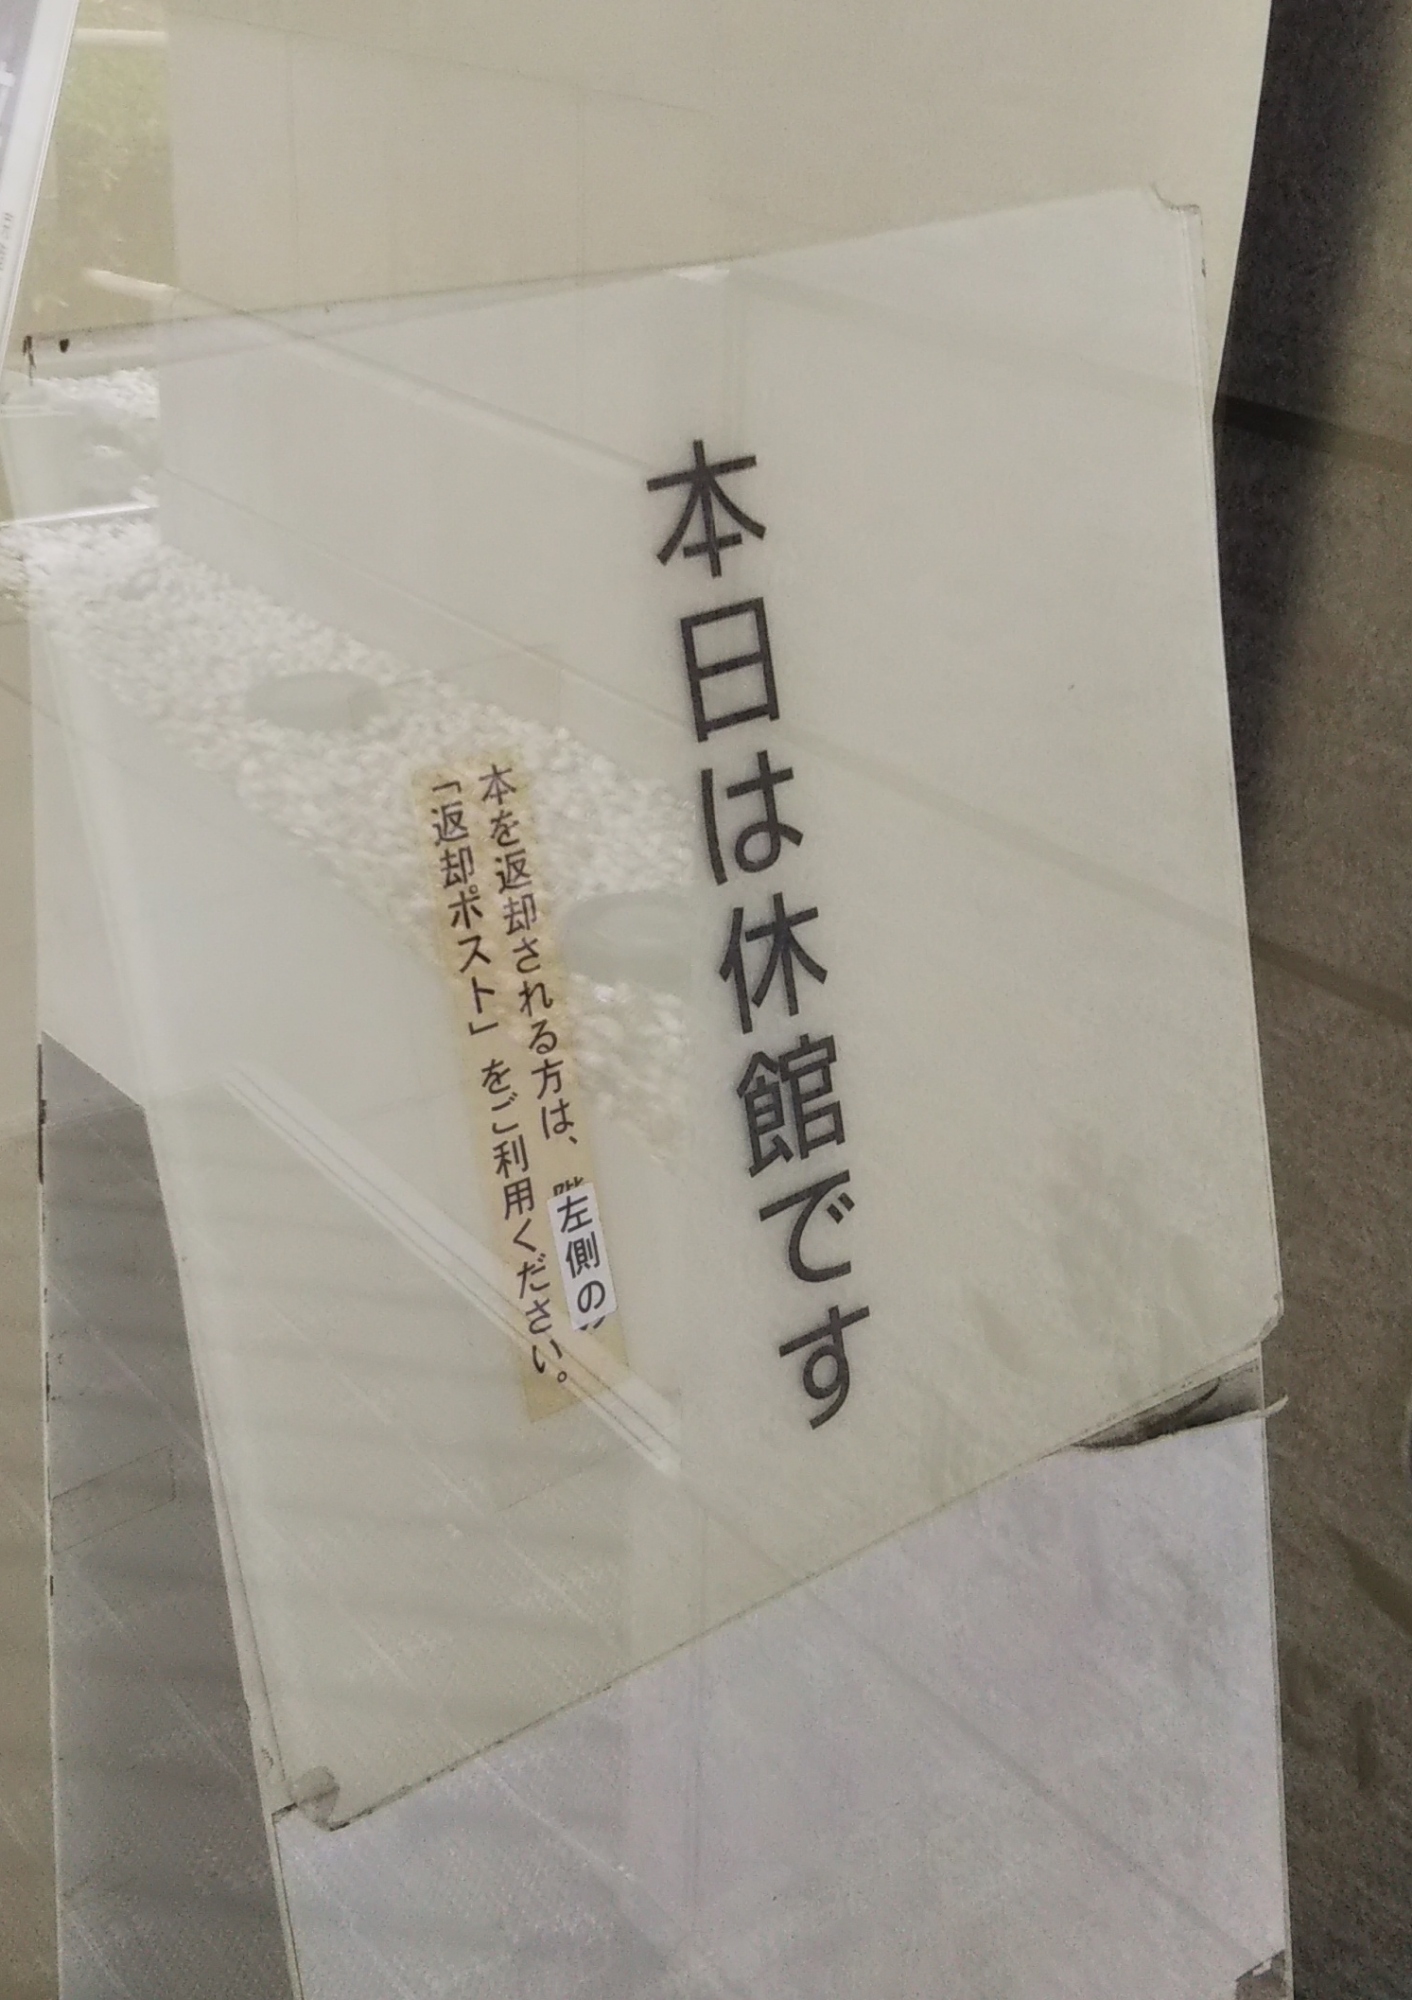 本日は休館です
本を返却される方は、左側の
「返却ポスト」をご利用ください。